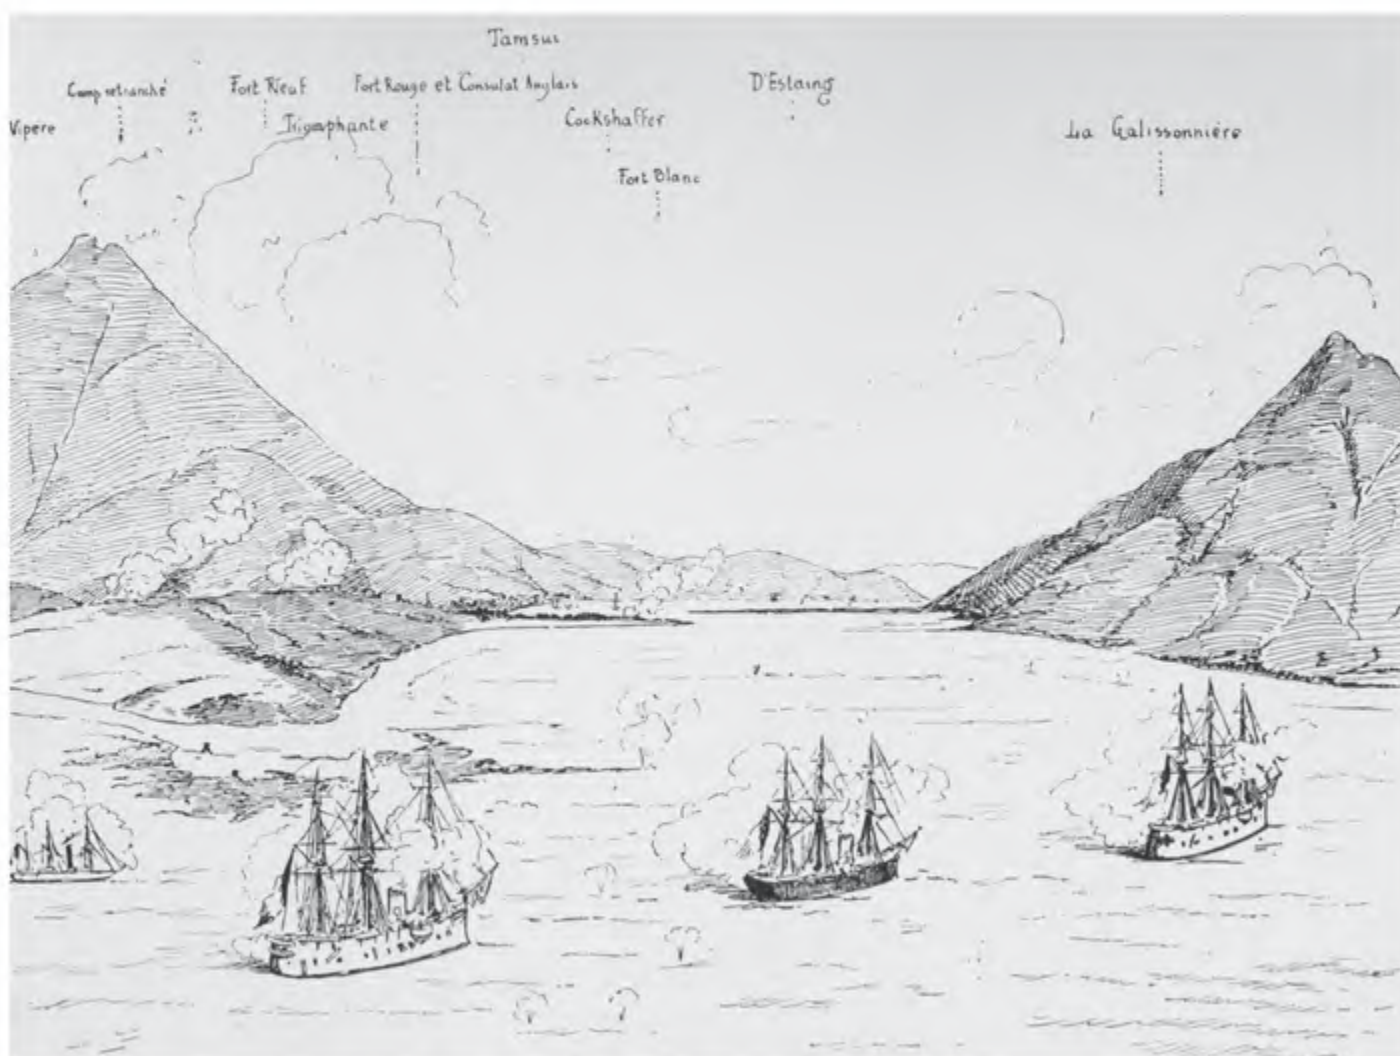 Tamsui
Camp retranché
Fort Neuf
Fort Rouge et Consulat Anglais
D'Estaing
Vipere
Triomphante
Cockshaffer
La Galissonnière
Fort Blanc